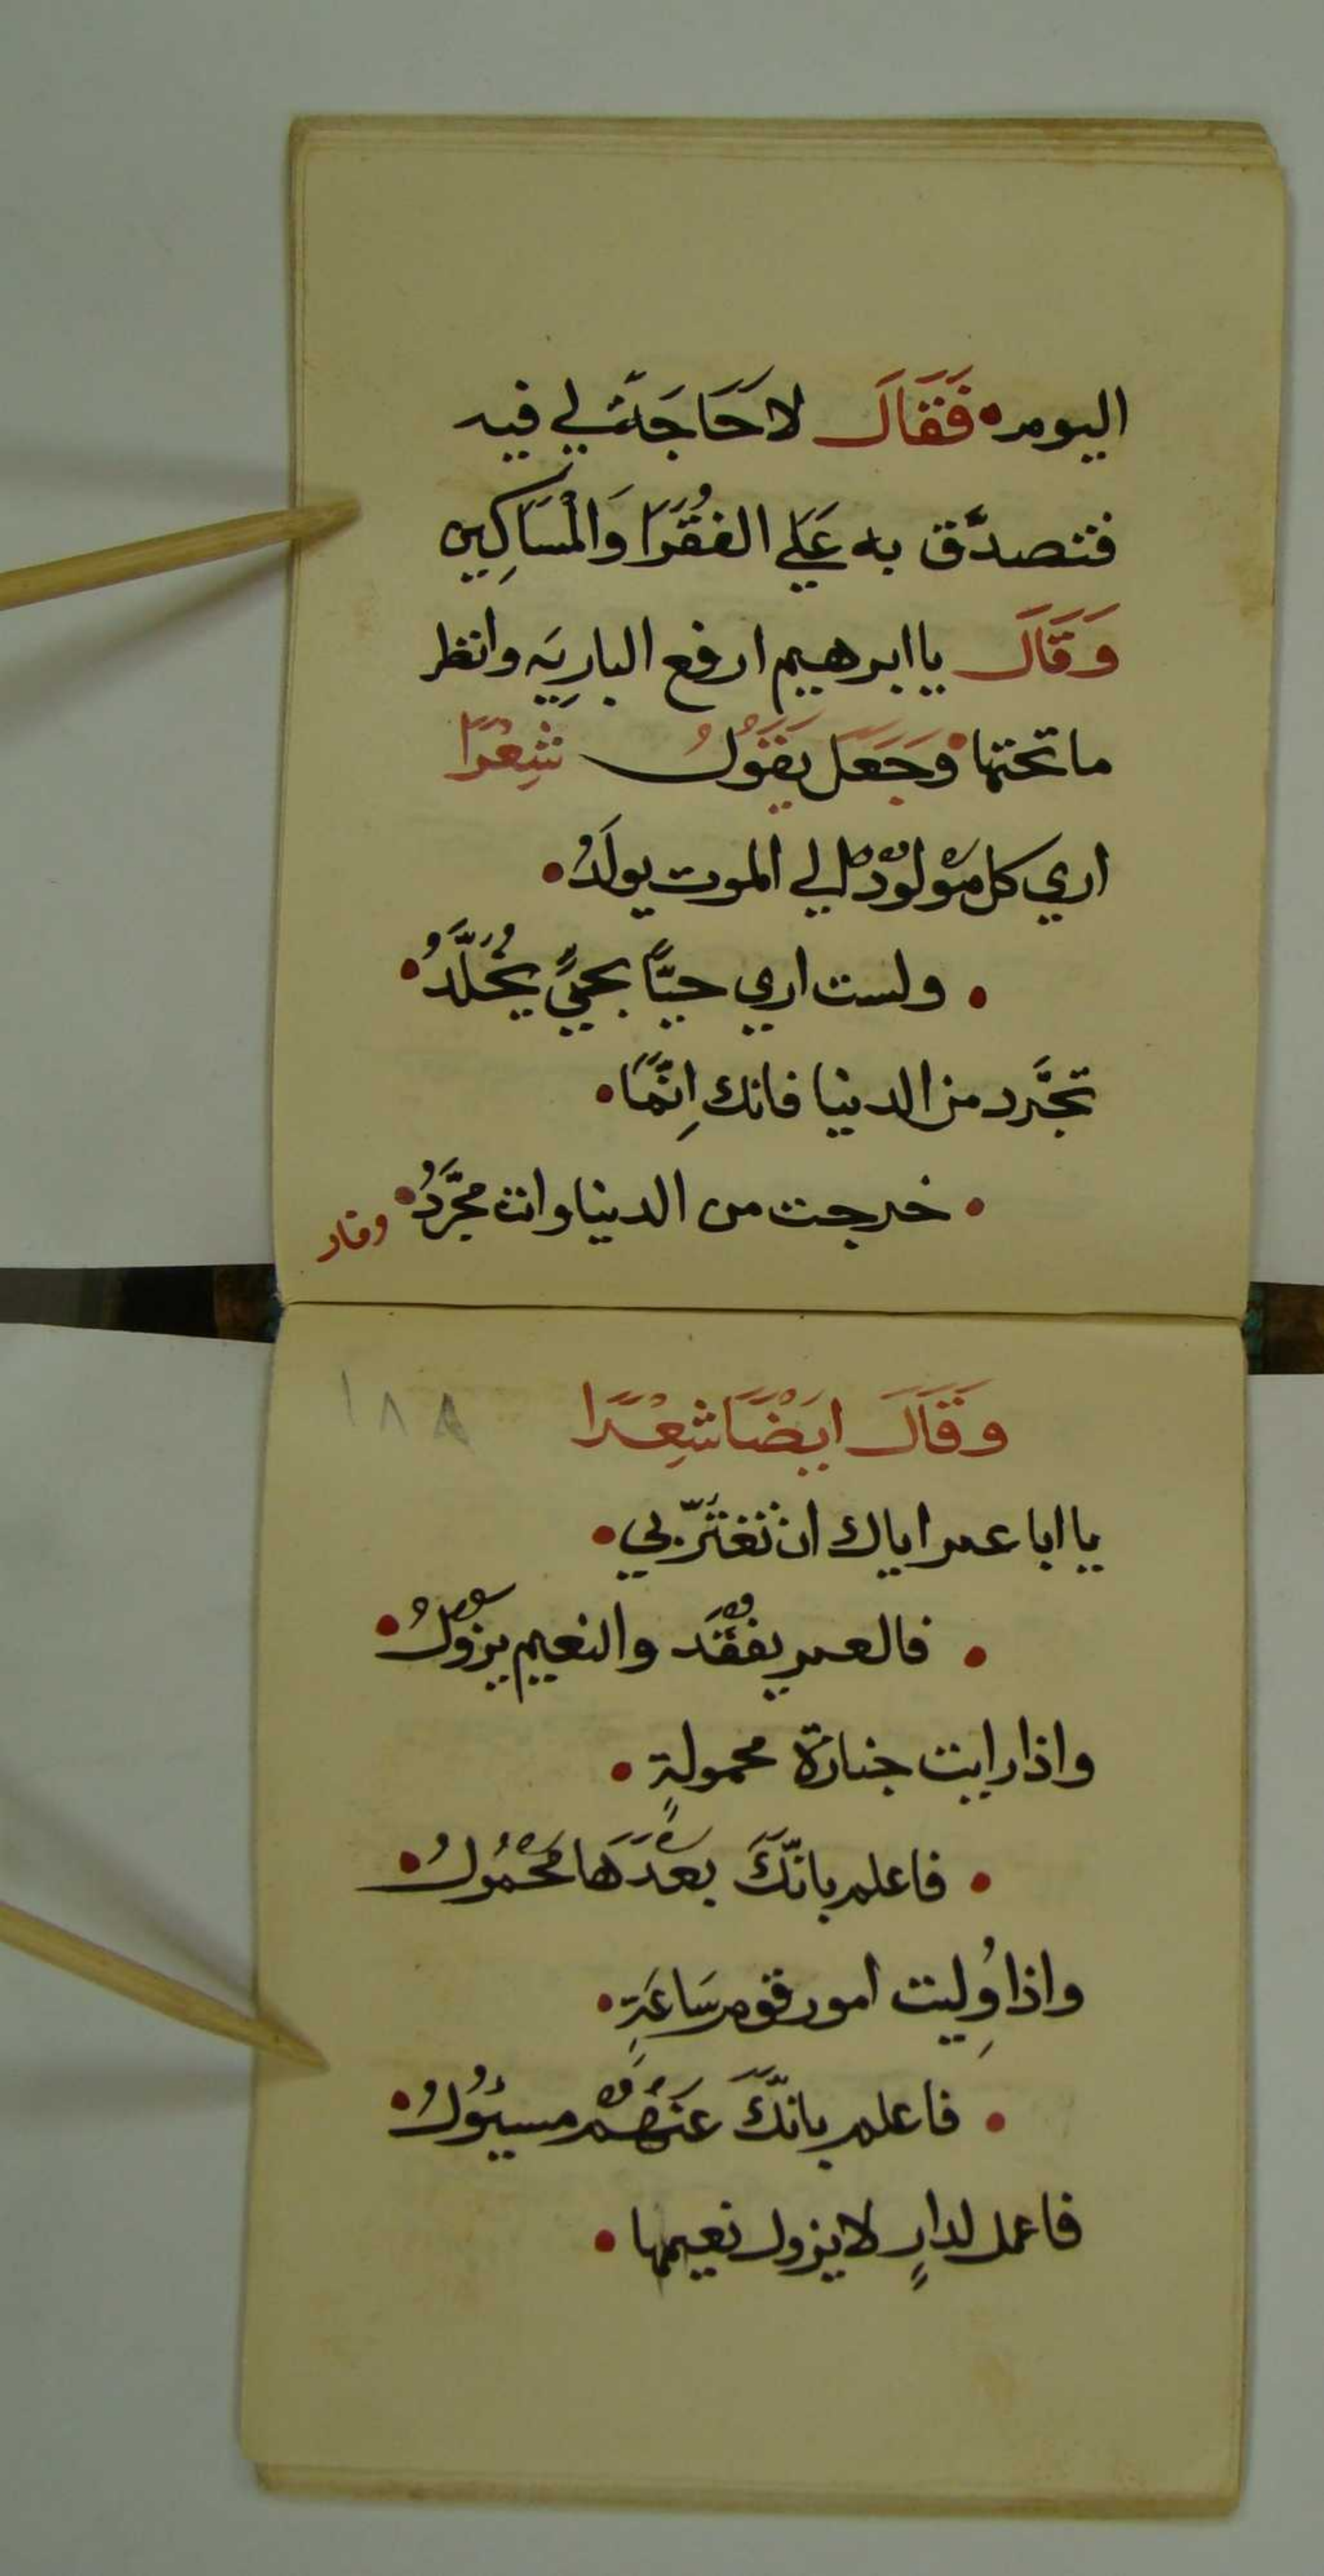 اليوم • فَقَالَ لا حَاجَة لي فيه
فتصدَّق به عَلي الفُقَرَا وَالْمَسَاكِين
وَقَالَ يا ابرهيم ارفع البارِيَه وانظر
ما تحتها • وَجَعَلَ يَقَوُلُ شِعْرًا
اري كل مَوْلُودٍ الي الموت يولَدُ •
• ولست اري حيَّاً بحيٍّ يُخَلَّدُ •
تجَّرد من الدنيا فانك اِنَّمَا •
• خرجت من الدنيا وانت مجَرَّدُ •
وقال
١٨٨
وَقَالَ ايَضْاً شِعْرًا
يا ابا عمر اياك ان تَغتَرّ بي •
• فالعمر يفقَد والنعيم يزوُلُ •
واذا رايت جنازة محمولةٍ •
• فاعلم بانَّكَ بَعْدَهَا مَحْمُولُ •
واذا وُلِيت امور قوم سَاعَةٍ •
• فاعلم بانَّكَ عَنْهُمْ مسيُولُ •
فاعمل لدارٍ لا يزول نعيمها •